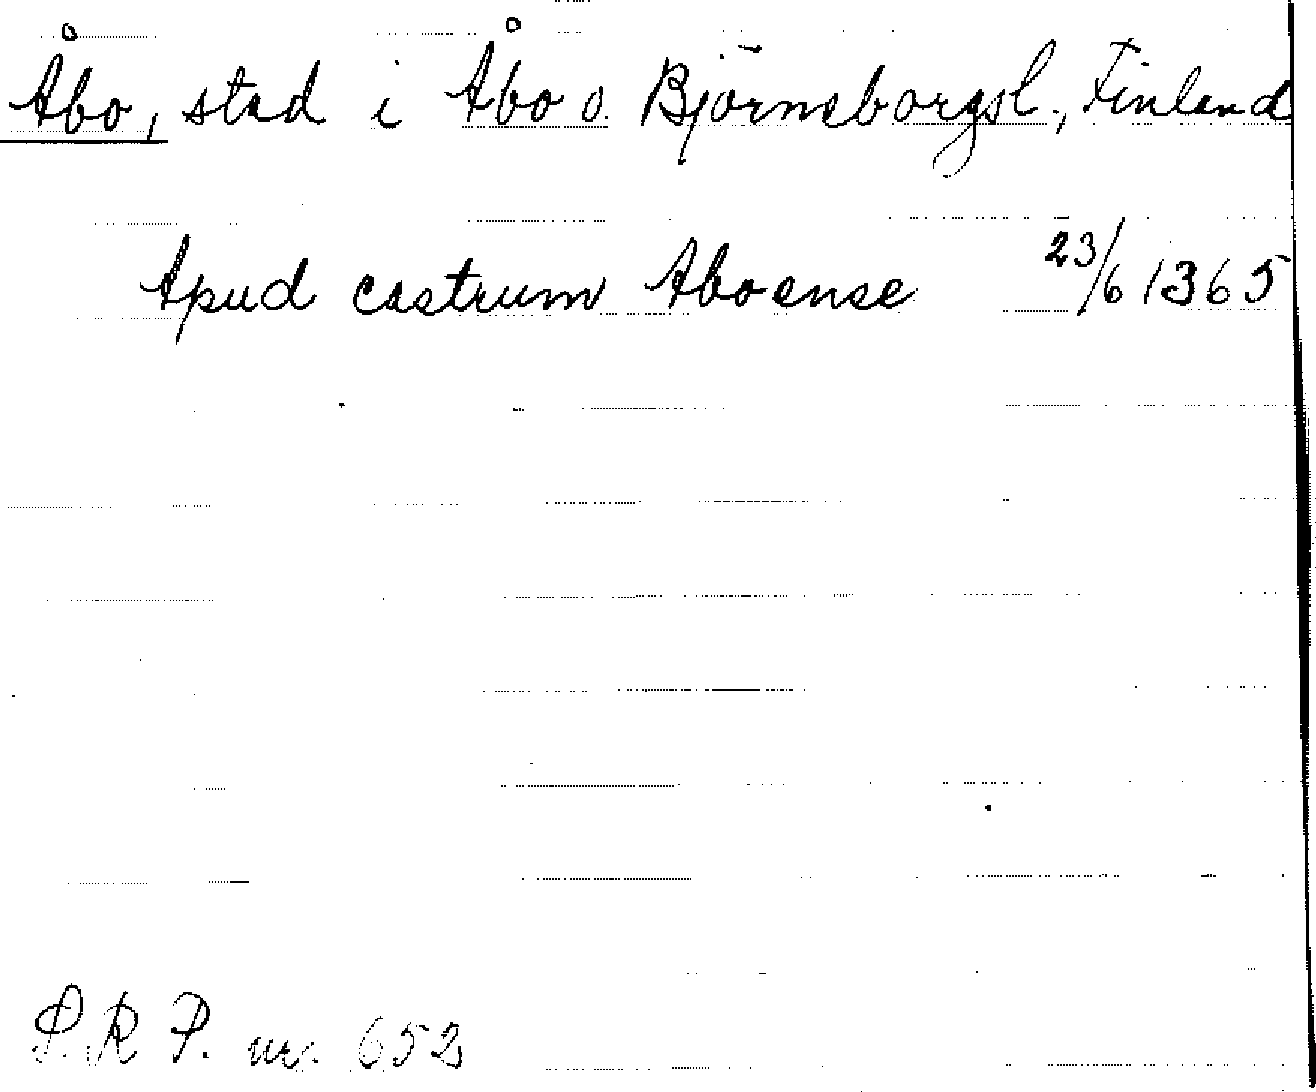 Åbo, stad i Åbo o. Björneborgsl., Finland
Apud castrum Aboense 23/6 1365
S.R P. nr. 652